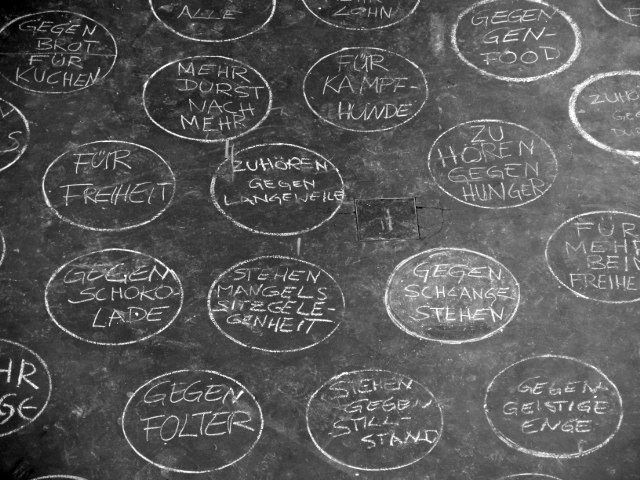 ALLE
LOHN
GEGEN
BROT
FÜR
KUCHEN
GEGEN
GEN-
FOOD
MEHR
DURST
NACH
MEHR
FÜR
KAMPF-
HUNDE
ZUHÖ
GEG
DU
S
FÜR
FREIHEIT
ZUHÖREN
GEGEN
LANGEWEILE
ZU
HÖREN
GEGEN
HUNGER
FÜR
MEHR
BEIN
FREIHE
GEGEN
SCHOKO-
LADE
STEHEN
MANGELS
SITZGELE-
GENHEIT
GEGEN
SCHLANGE
STEHEN
HR
SE
GEGEN
FOLTER
STEHEN
GEGEN
STILL-
STAND
GEGEN
GEISTIGE
ENGE